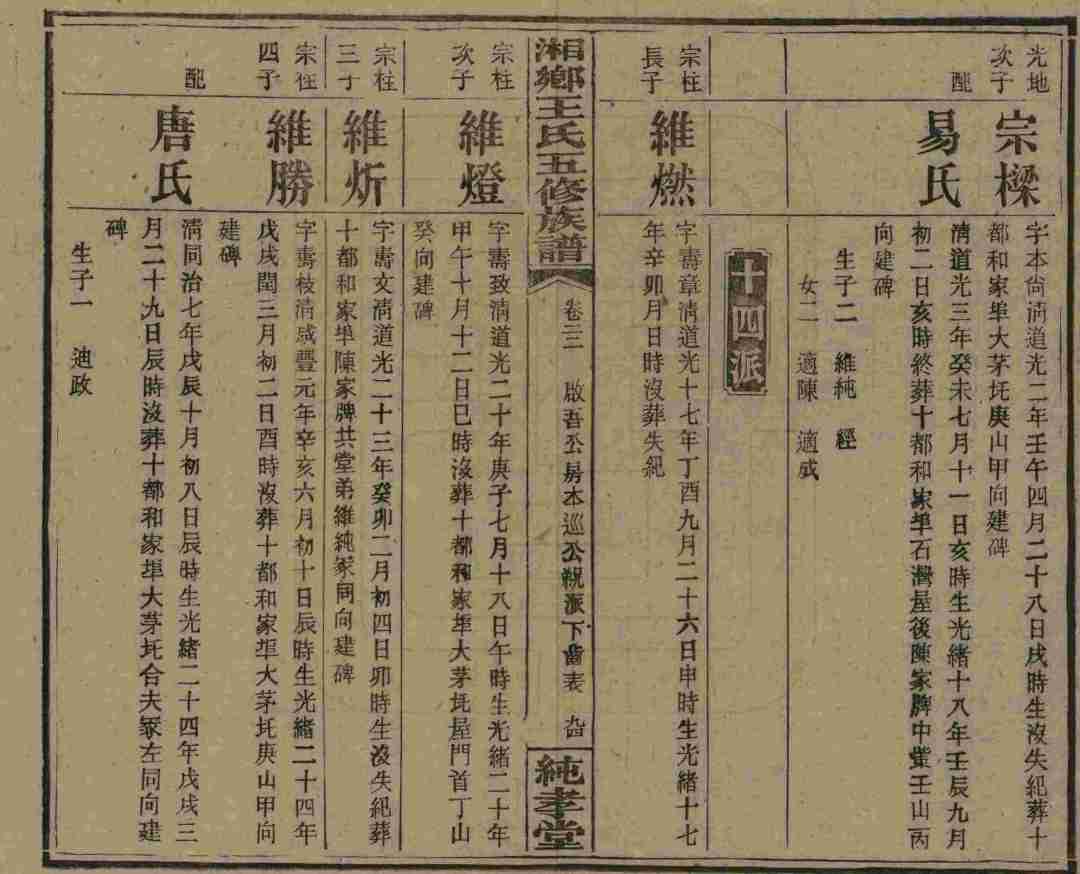 光地
次子
宗樑
字本尙淸道光二年壬午四月二十八日戌時生沒失紀葬十
都和家埠大茅坵庚山甲向建碑
配
易氏
淸道光三年癸未七月十一日亥時生光緒十八年壬辰九月
初二日亥時終葬十都和家埠石灣屋後陳家牌中塋壬山丙
向建碑
生子二 維純 經
女二 適陳 適成
十四派
宗柱
長子
維燃
字壽章淸道光十七年丁酉九月二十六日申時生光緒十七
年辛卯月日時沒葬失紀
湘鄉王氏五修族譜
卷三三 啟吾公房本巡公派下齒表
純孝堂
宗柱
次子
維燈
字壽致淸道光二十年庚子七月十八日午時生光緒二十年
甲午十月十二日巳時沒葬十都和家埠大茅坵屋門首丁山
癸向建碑
宗柱
三子
維炘
字壽文淸道光二十三年癸卯二月初四日卯時生沒失紀葬
十都和家埠陳家牌共堂弟維純冢同向建碑
宗柱
四子
維勝
字壽枝淸咸豐元年辛亥六月初十日辰時生光緒二十四年
戊戌閏三月初二日酉時沒葬十都和家埠大茅坵庚山甲向
建碑
配
唐氏
淸同治七年戊辰十月初八日辰時生光緒二十四年戊戌三
月二十九日辰時沒葬十都和家埠大茅坵合夫冢左同向建
碑
生子一 迪政